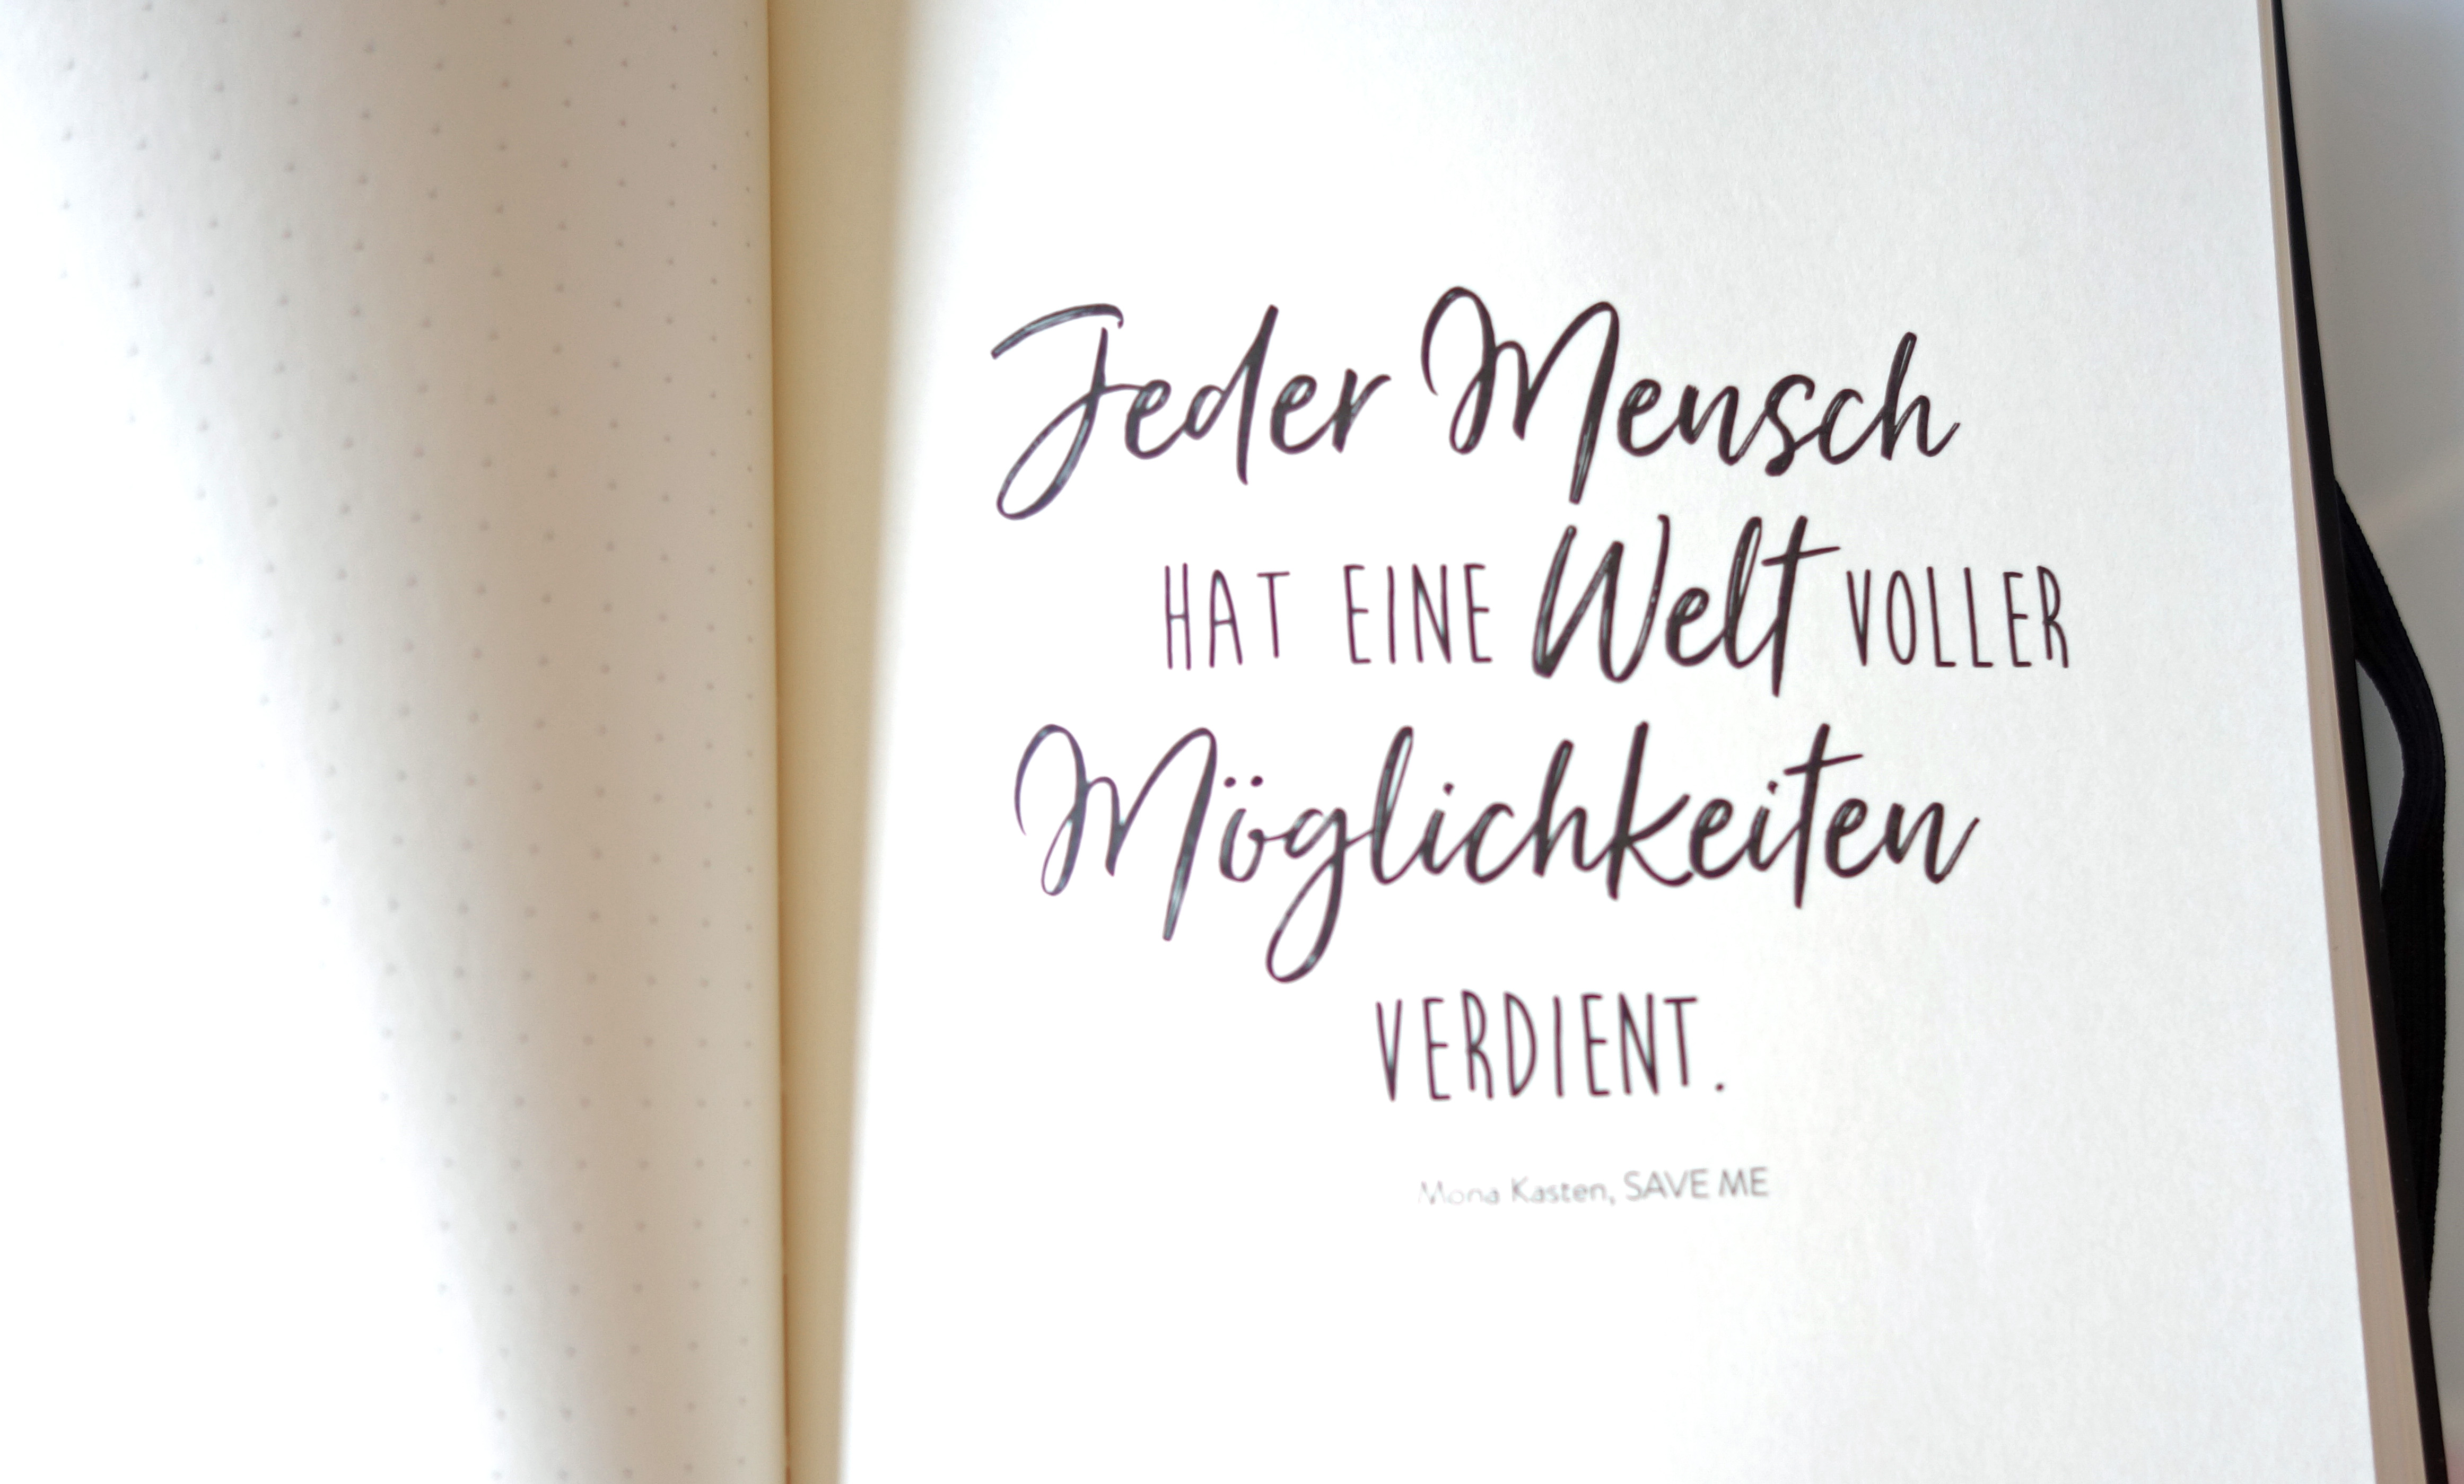 Jeder Mensch
HAT EINE Welt VOLLER
Möglichkeiten
VERDIENT.
Mona Kasten, SAVE ME